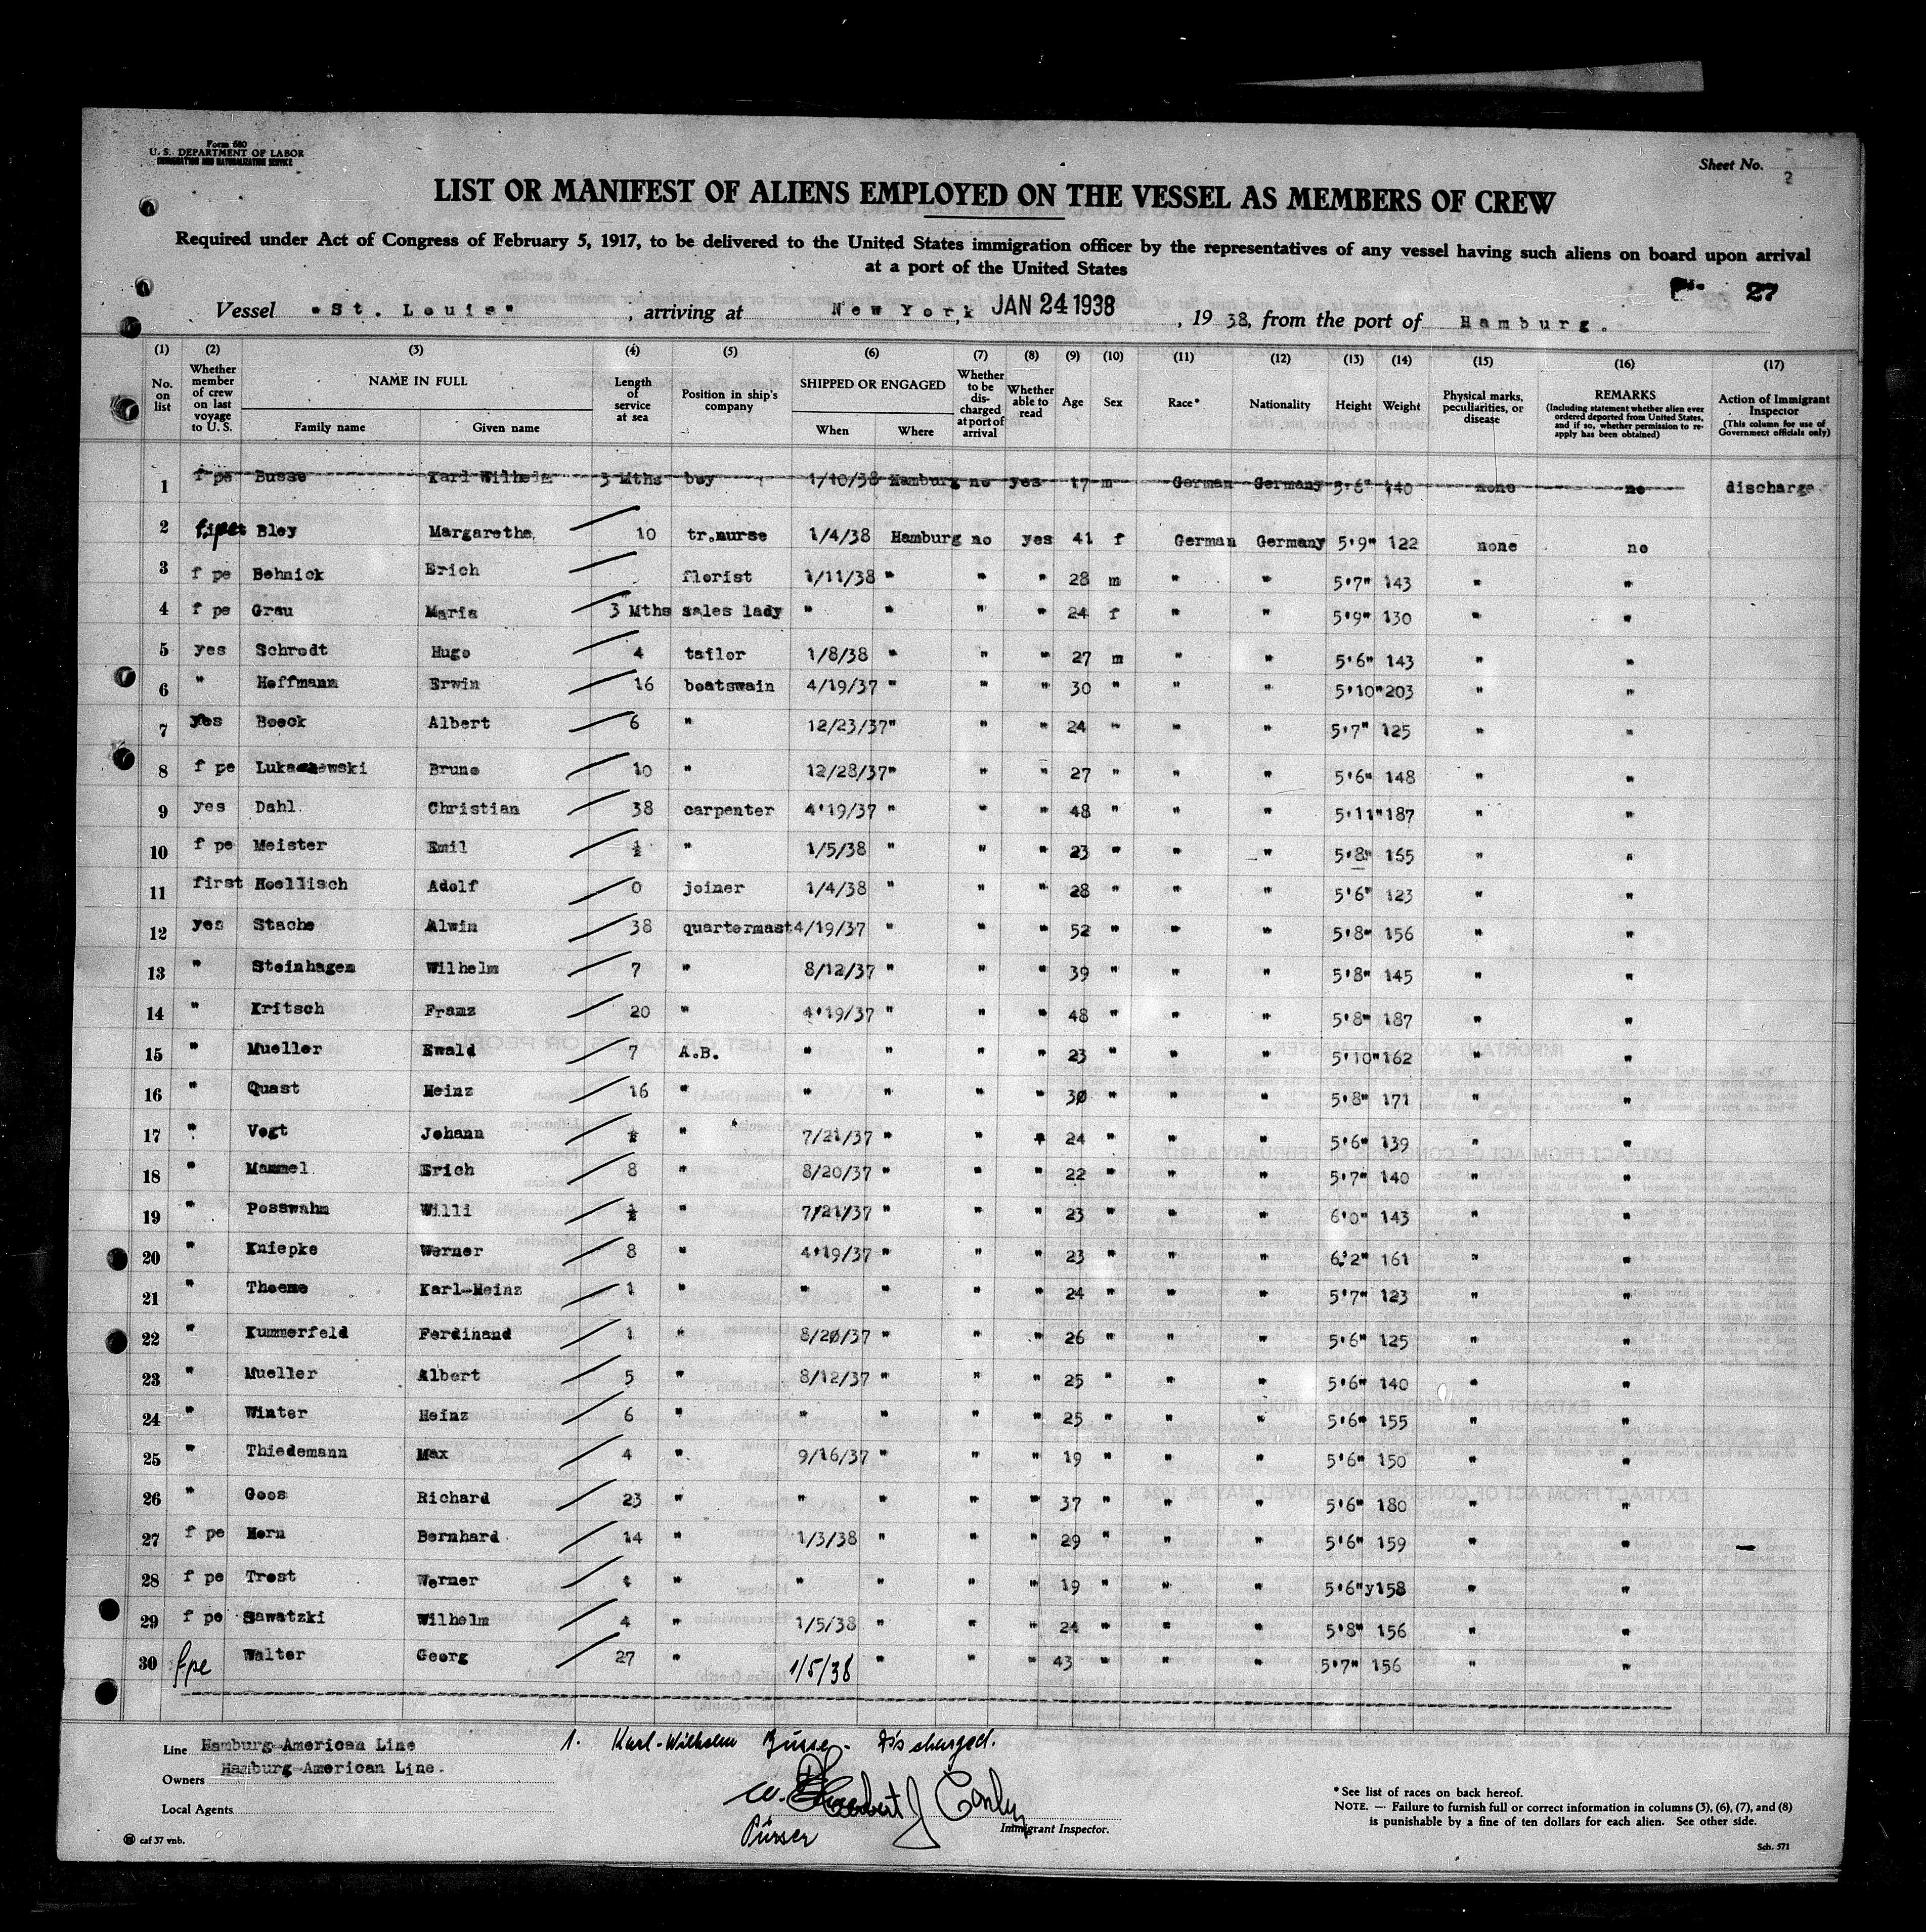 Form 680
U. S. DEPARTMENT OF LABOR
IMMIGRATION AND NATURALIZATION SERVICE
Sheet No. 2
LIST OR MANIFEST OF ALIENS EMPLOYED ON THE VESSEL AS MEMBERS OF CREW
Required under Act of Congress of February 5, 1917, to be delivered to the United States immigration officer by the representatives of any vessel having such aliens on board upon arrival
at a port of the United States
27
Vessel "St. Louis", arriving at New York, JAN 24 1938, 19 38, from the port of Hamburg.
(1) (2) (3) (4) (5) (6) (7) (8) (9) (10) (11) (12) (13) (14) (15) (16) (17)
No. on list Whether member of crew on last voyage to U.S. NAME IN FULL Family name Given name Length of service at sea Position in ship's company SHIPPED OR ENGAGED When Where Whether to be discharged at port of arrival Whether able to read Age Sex Race* Nationality Height Weight Physical marks, peculiarities, or disease REMARKS (Including statement whether alien ever ordered deported from United States, and if so, whether permission to reapply has been obtained) Action of Immigrant Inspector (This column for use of Government officials only)
1 f pe Busse Karl Wilhelm 3 Mths boy 1/10/38 Hamburg no yes 17 m German Germany 5'6" 140 none no discharge
2 Bley Margarethe 10 tr.nurse 1/4/38 Hamburg no yes 41 f German Germany 5'9" 122 none no
3 f pe Behnick Erich florist 1/11/38 " " " 28 m " " 5'7" 143 " "
4 f pe Grau Maria 3 Mths sales lady " " " " 24 f " " 5'9" 130 " "
5 yes Schrodt Hugo 4 tailor 1/8/38 " " " 27 m " " 5'6" 143 " "
6 " Hoffmann Erwin 16 boatswain 4/19/37 " " " 30 " " " 5'10" 203 " "
7 yes Boeck Albert 6 " 12/23/37 " " " 24 " " " 5'7" 125 " "
8 f pe Lukaschewski Bruno 10 " 12/28/37 " " " 27 " " " 5'6" 148 " "
9 yes Dahl Christian 38 carpenter 4'19/37 " " " 48 " " " 5'11" 187 " "
10 f pe Meister Emil ½ " 1/5/38 " " " 23 " " " 5'8" 165 " "
11 first Hoellisch Adolf 0 joiner 1/4/38 " " " 28 " " " 5'6" 123 " "
12 yes Stache Alwin 38 quartermast 4/19/37 " " " 52 " " " 5'8" 156 " "
13 " Steinhagen Wilhelm 7 " 8/12/37 " " " 39 " " " 5'8" 145 " "
14 " Kritsch Franz 20 " 4'19/37 " " " 48 " " " 5'8" 187 " "
15 " Mueller Ewald 7 A.B. " " " " 23 " " " 5'10" 162 " "
16 " Quast Heinz 16 " " " " " 30 " " " 5'8" 171 " "
17 " Vogt Johann ½ " 7/21/37 " " " 24 " " " 5'6" 139 " "
18 " Mammel Erich 8 " 8/20/37 " " " 22 " " " 5'7" 140 " "
19 " Posswahm Willi ½ " 7/21/37 " " " 23 " " " 6'0" 143 " "
20 " Kniepke Werner 8 " 4'19/37 " " " 23 " " " 6'2" 161 " "
21 " Thoeme Karl-Heinz 1 " " " " " 24 " " " 5'7" 123 " "
22 " Kummerfeld Ferdinand 1 " 8/20/37 " " " 26 " " " 5'6" 125 " "
23 " Mueller Albert 5 " 8/12/37 " " " 25 " " " 5'6" 140 " "
24 " Winter Heinz 6 " " " " " 25 " " " 5'6" 155 " "
25 " Thiedemann Max 4 " 9/16/37 " " " 19 " " " 5'6" 150 " "
26 " Goos Richard 23 " " " " " 37 " " " 5'6" 180 " "
27 f pe Horn Bernhard 14 " 1/3/38 " " " 29 " " " 5'6" 159 " "
28 f pe Trost Werner " " " " " 19 " " " 5'6"y158 " "
29 f pe Sawatzki Wilhelm 4 " 1/5/38 " " " 24 " " " 5'8" 156 " "
30 f pe Walter Georg 27 " 1/5/38 " " " 43 " " " 5'7" 156 " "
Line Hamburg-American Line
Owners Hamburg-American Line.
Local Agents
caf 37 vnb.
1. Karl-Wilhelm Busse. Discharged.
Purser
Immigrant Inspector.
*See list of races on back hereof.
NOTE. — Failure to furnish full or correct information in columns (3), (6), (7), and (8)
is punishable by a fine of ten dollars for each alien. See other side.
Sch. 571